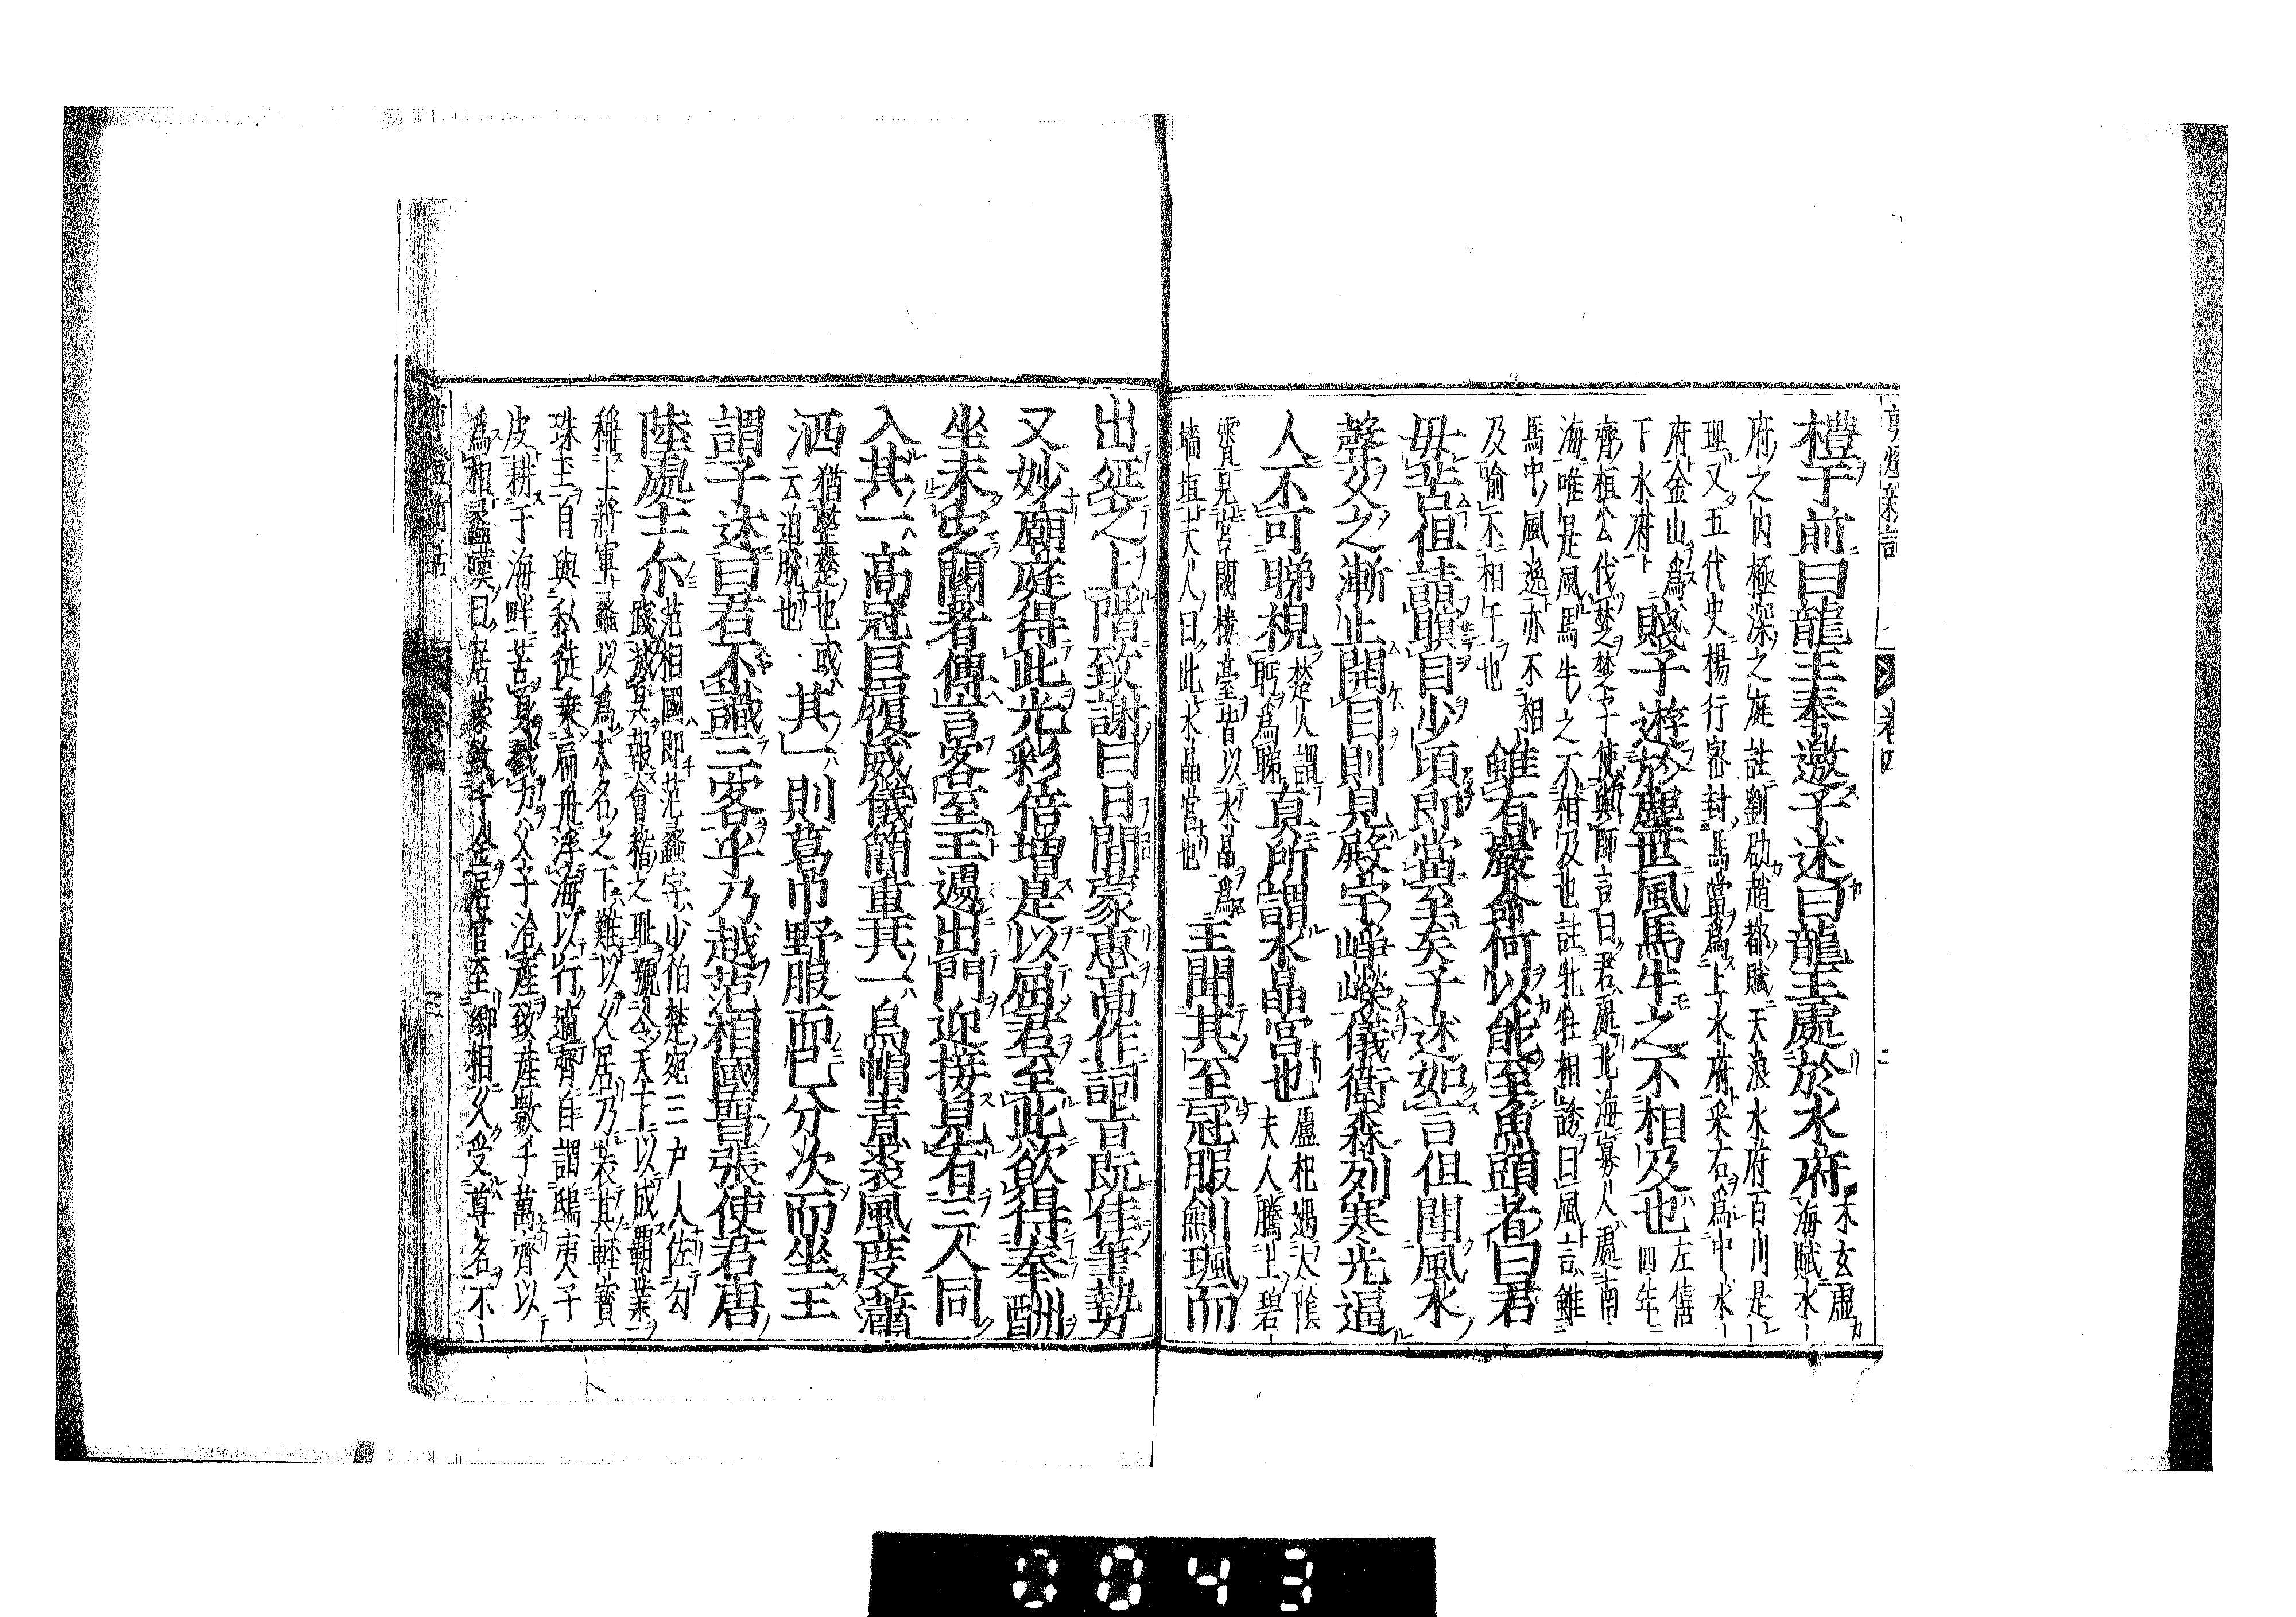 剪燈新話 卷四 二
禮于前曰龍王奉邀子述曰龍王處於水府
木玄虛
海賦水ー
府之内極深之庭註劉劭趙都賦天浪水府百川是ー
理又五代史楊行密封馬當爲上水府采石爲中水ー
府金山爲
下水府
賤子遊於塵世風馬牛之不相及也
左僖
四年
齊桓公伐楚楚子使與師言曰君處北海寡人處南
海唯是風馬牛之不相及也註牝牡相誘曰風言雖
馬牛風逸亦不相
及喻不相干也
雖有嚴命何以能至魚頭者曰君
毋苦但請瞑目少頃即當至矣子述如言但聞風水
聲久之漸止開目則見殿宇崢嶸儀衛森列寒光逼
人不可睇視
楚人謂
眄爲睇
真所謂水晶宮也
盧杞遇太陰
夫人騰上碧ー
霄見宮闕樓臺皆以水晶爲
墻垣夫人曰此水晶宮也
王聞其至冠服劍珮而
出延之上階致謝曰日間蒙惠高作詞旨既佳筆勢
又妙廟庭得此光彩倍增是以屈君至此欲得奉酬
坐未定閽者傳言客至王遽出門迎接見有三人同
入其一高冠巨履威儀簡重其一烏帽青裘風度瀟
洒
猶整楚也或
云迫脫也
其一則葛巾野服而已分次而坐王
謂子述曰君不識三客乎乃越范相國晉張使君唐
陸處士尓
范相國即范蠡字少伯楚宛三戶人佐勾
踐滅吳報會稽之耻號令天下以成霸業
稱上將軍蠡以爲大名之下難以久居乃裝其輕寶
珠玉自與私徒乘扁舟浮海以行適齊自謂鴟夷子
皮耕于海畔苦身戮力父子治產致產數千萬齊以
爲相蠡嘆曰居家致千金居官至卿相久受尊名不ー
剪燈新話 卷四 三
0043